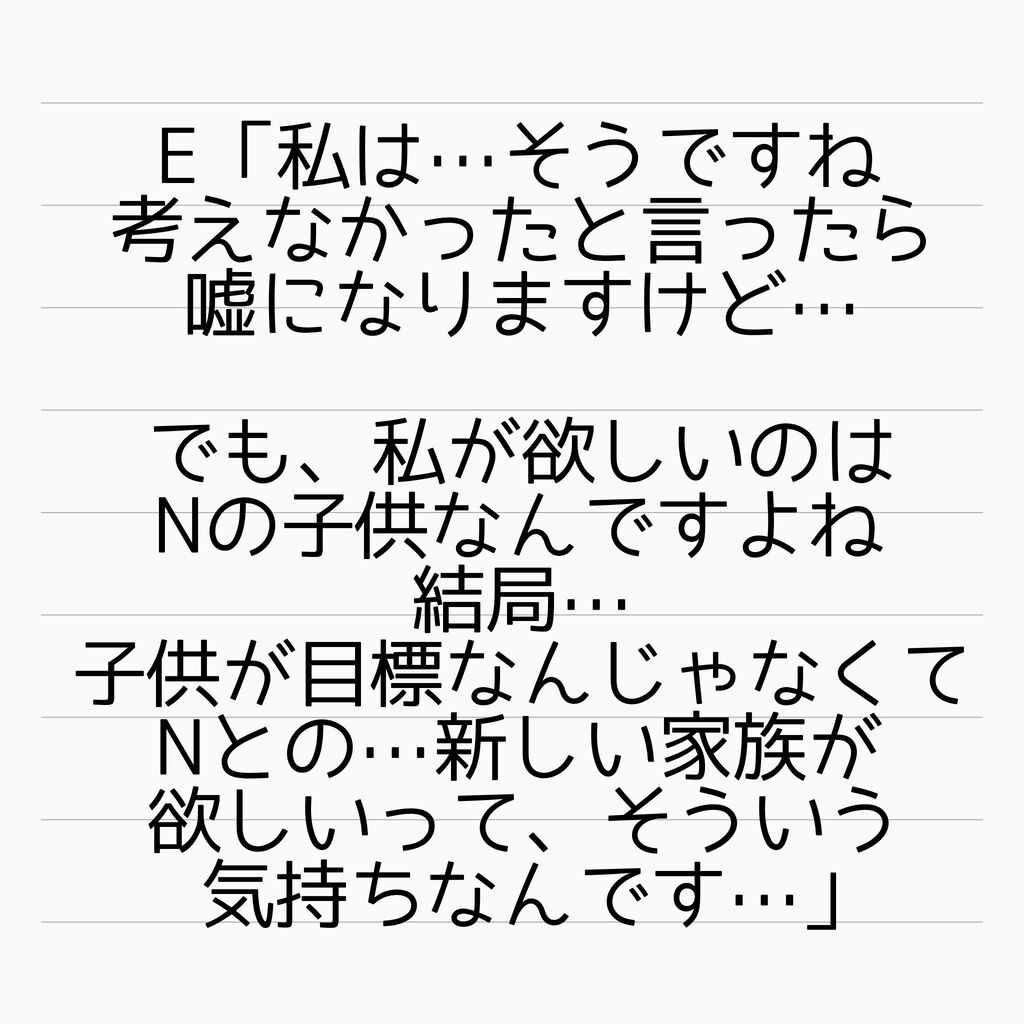 E「私は…そうですね
考えなかったと言ったら
嘘になりますけど…
でも、私が欲しいのは
Nの子供なんですよね
結局…
子供が目標なんじゃなくて
Nとの…新しい家族が
欲しいって、そういう
気持ちなんです…」